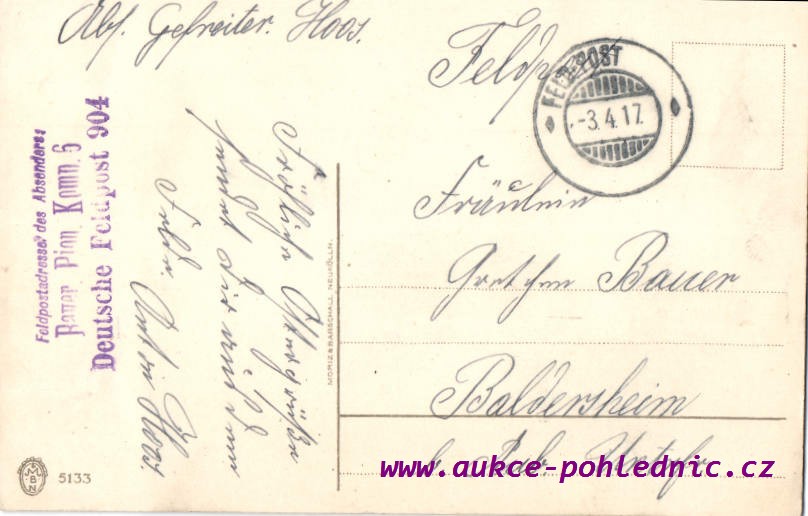 Abs. Gefreiter. Hoos.
Feldpost
FELD-POST
-3.4.17.
Feldpostadresse des Absenders:
Bayer. Pion. Komp. 6
Deutsche Feldpost 904
Fröhliche Ostergrüße
sendet Dir aus dem
Felde. Anton Hoos.
MORIZ & BARSCHALL, NEUKÖLLN.
Fräulein
Gretchen Bauer
Baldersheim
b. Aub. Unterfr.
MBN
5133
www.aukce-pohlednic.cz